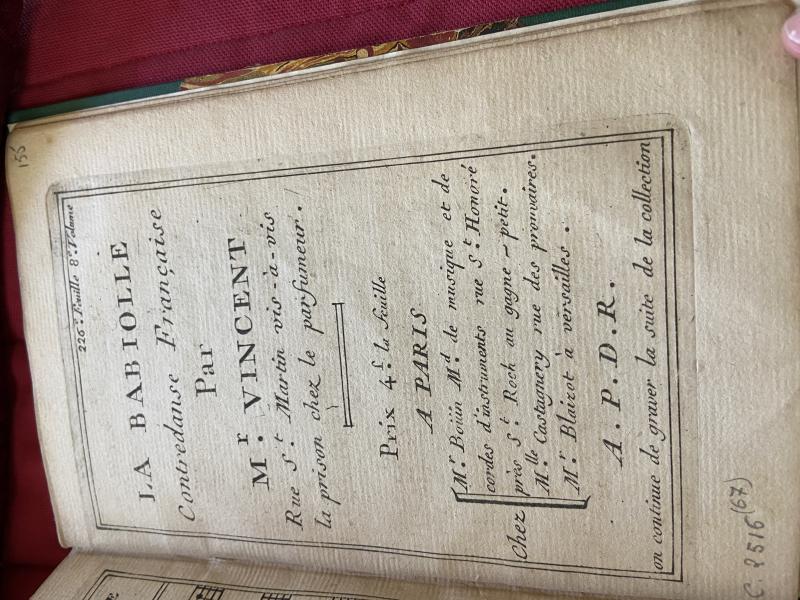 155
226.e Feuille 8.e Volume
LA BABIOLLE
Contredanse Française
Par
M.r VINCENT
Rue S.t Martin vis-à-vis
la prison chez le parfumeur.
Prix 4.s la feuille
A PARIS
M.r Boüin M.d de musique et de
cordes d'instruments rue S.t Honoré
Chez près S.t Roch au gagne-petit.
M.lle Castagnery rue des prouvaires.
M.r Blaizot à versailles.
A.P.D.R.
on continue de graver la suite de la collection
C. 2516 (67)